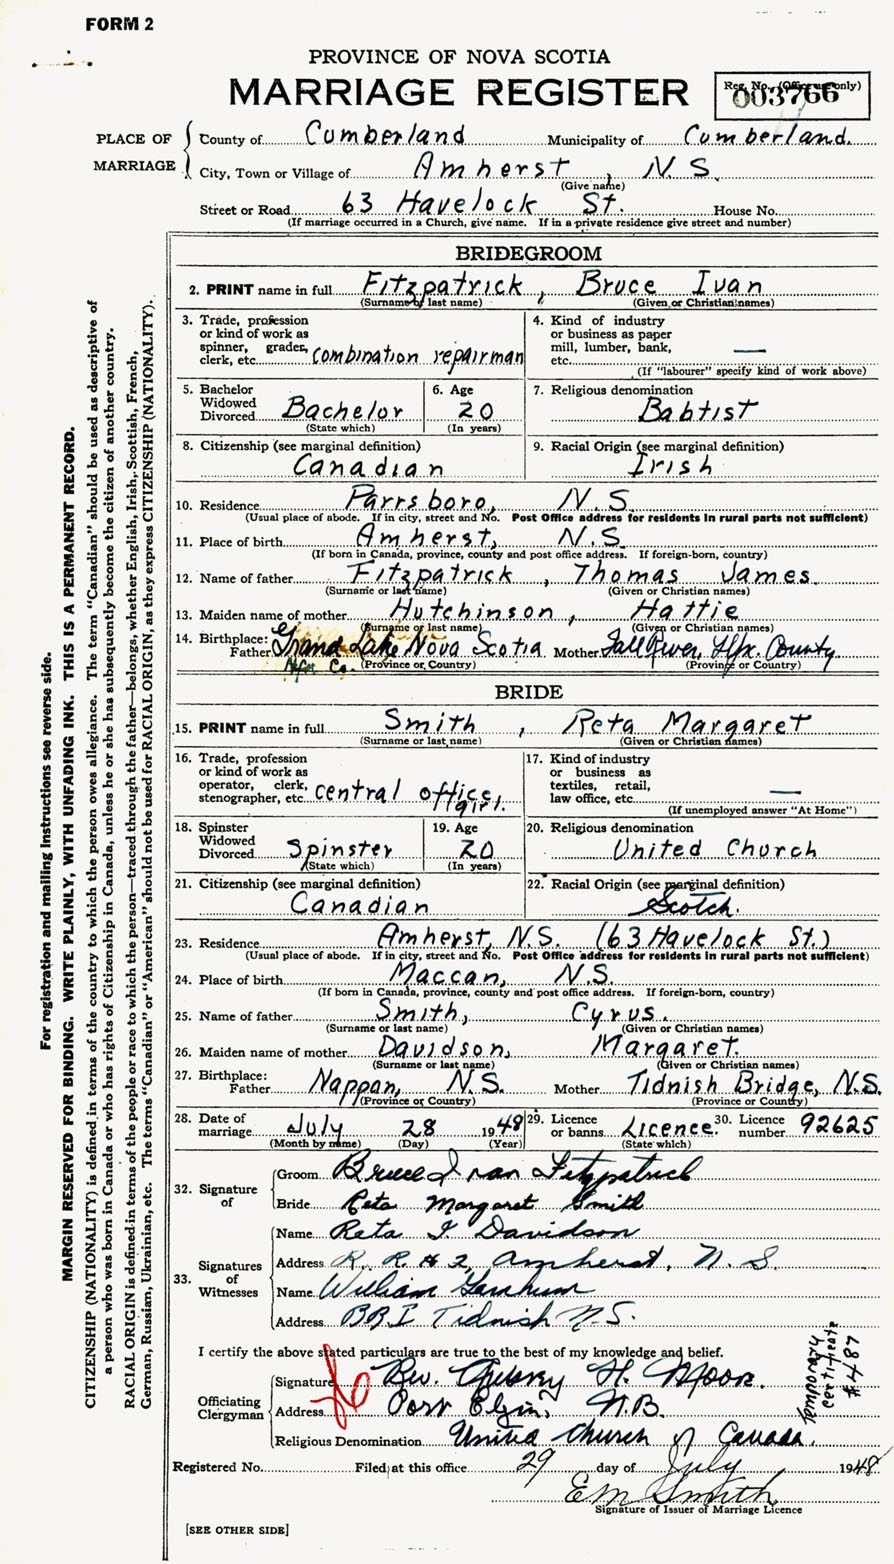 FORM 2
PROVINCE OF NOVA SCOTIA
MARRIAGE REGISTER
Reg. No. (Office use only)
003766
PLACE OF MARRIAGE
County of Cumberland Municipality of Cumberland.
City, Town or Village of Amherst, N.S.
(Give name)
Street or Road 63 Havelock St. House No.
(If marriage occurred in a Church, give name. If in a private residence give street and number)
BRIDEGROOM
2. PRINT name in full Fitzpatrick, Bruce Ivan
(Surname or last name) (Given or Christian names)
3. Trade, profession or kind of work as spinner, grader, clerk, etc. combination repairman
4. Kind of industry or business as paper mill, lumber, bank, etc. —
(If "labourer" specify kind of work above)
5. Bachelor Widowed Divorced Bachelor
(State which)
6. Age 20
(In years)
7. Religious denomination
Babtist
8. Citizenship (see marginal definition)
Canadian
9. Racial Origin (see marginal definition)
Irish
10. Residence Parrsboro, N.S.
(Usual place of abode. If in city, street and No. Post Office address for residents in rural parts not sufficient)
11. Place of birth Amherst, N.S.
(If born in Canada, province, county and post office address. If foreign-born, country)
12. Name of father Fitzpatrick, Thomas James.
(Surname or last name) (Given or Christian names)
13. Maiden name of mother Hutchinson, Hattie
(Surname or last name) (Given or Christian names)
14. Birthplace: Father Grand Lake Nova Scotia Mother Fall River, Hfx. County
Hfx Co. (Province or Country) (Province or Country)
BRIDE
15. PRINT name in full Smith, Reta Margaret
(Surname or last name) (Given or Christian names)
16. Trade, profession or kind of work as operator, clerk, stenographer, etc. central office girl.
17. Kind of industry or business as textiles, retail, law office, etc. —
(If unemployed answer "At Home")
18. Spinster Widowed Divorced Spinster
(State which)
19. Age 20
(In years)
20. Religious denomination
United Church
21. Citizenship (see marginal definition)
Canadian
22. Racial Origin (see marginal definition)
Scotch.
23. Residence Amherst, N.S. (63 Havelock St.)
(Usual place of abode. If in city, street and No. Post Office address for residents in rural parts not sufficient)
24. Place of birth Maccan, N.S.
(If born in Canada, province, county and post office address. If foreign-born, country)
25. Name of father Smith, Cyrus.
(Surname or last name) (Given or Christian names)
26. Maiden name of mother Davidson, Margaret.
(Surname or last name) (Given or Christian names)
27. Birthplace: Father Nappan, N.S. Mother Tidnish Bridge, N.S.
(Province or Country) (Province or Country)
28. Date of marriage July 28 1948
(Month by name) (Day) (Year)
29. Licence or banns Licence.
(State which)
30. Licence number 92625
32. Signature of
Groom Bruce Ivan Fitzpatrick
Bride Reta Margaret Smith
33. Signatures of Witnesses
Name Reta I Davidson
Address R. R # 2, Amherst, N. S.
Name William
Address Tidnish N.S.
I certify the above stated particulars are true to the best of my knowledge and belief.
Officiating Clergyman
Signature Rev. Aubrey H. Moore.
Address Port Elgin, N.B.
Religious Denomination United Church of Canada.
Registered No. Filed at this office 29 day of July 1948
EM Smith
Signature of Issuer of Marriage Licence
[SEE OTHER SIDE]
temporary certificate #487
For registration and mailing instructions see reverse side.
MARGIN RESERVED FOR BINDING. WRITE PLAINLY, WITH UNFADING INK. THIS IS A PERMANENT RECORD.
CITIZENSHIP (NATIONALITY) is defined in terms of the country to which the person owes allegiance. The term "Canadian" should be used as descriptive of
a person who was born in Canada or who has rights of Citizenship in Canada, unless he or she has subsequently become the citizen of another country.
RACIAL ORIGIN is defined in terms of the people or race to which the person—traced through the father—belongs, whether English, Irish, Scottish, French,
German, Russian, Ukrainian, etc. The terms "Canadian" or "American" should not be used for RACIAL ORIGIN, as they express CITIZENSHIP (NATIONALITY).